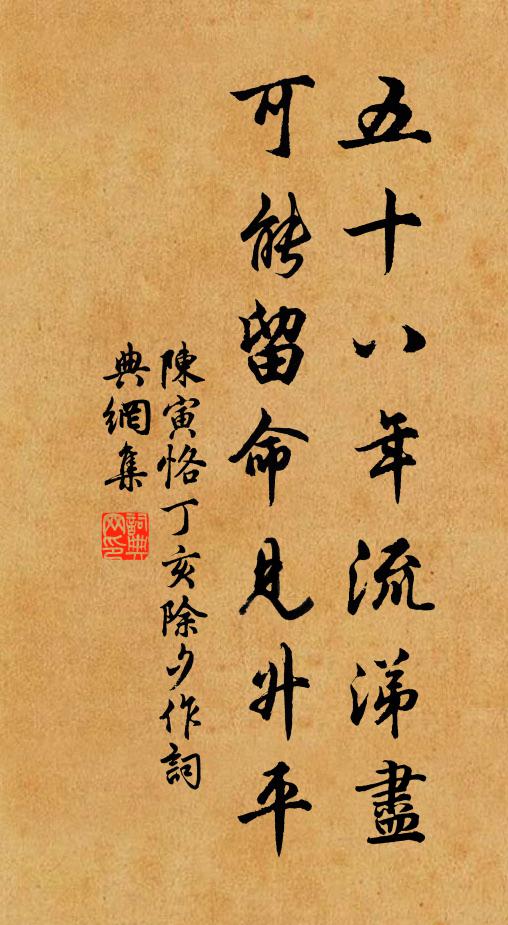 五十八年流涕盡
可能留命見升平
陳寅恪丁亥除夕作詞
典網集
詞典
网印